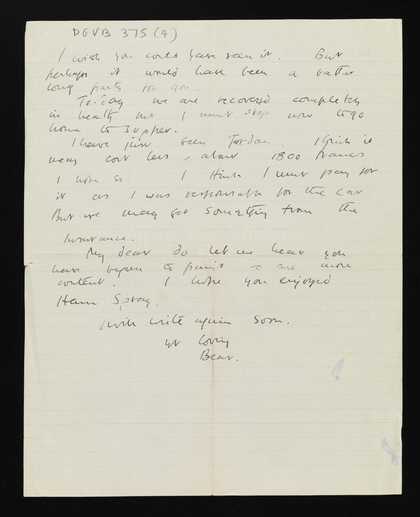 DGVB 375 (4)
I wish you could have seen it. But
perhaps it would have been a rather
long party for you.
To-day we are recovered completely
in health but I must stop now to go
home to supper.
I have just seen Jordan. I think it
may cost less, about 1800 francs
I hope so I think I must pay for
it as I was responsible for the car
But we may get something from the
Insurance.
My dear do let me hear you
have begun to paint & are more
content. I hope you enjoyed
Ham Spray.
I will write again soon.
yr loving
Bear.